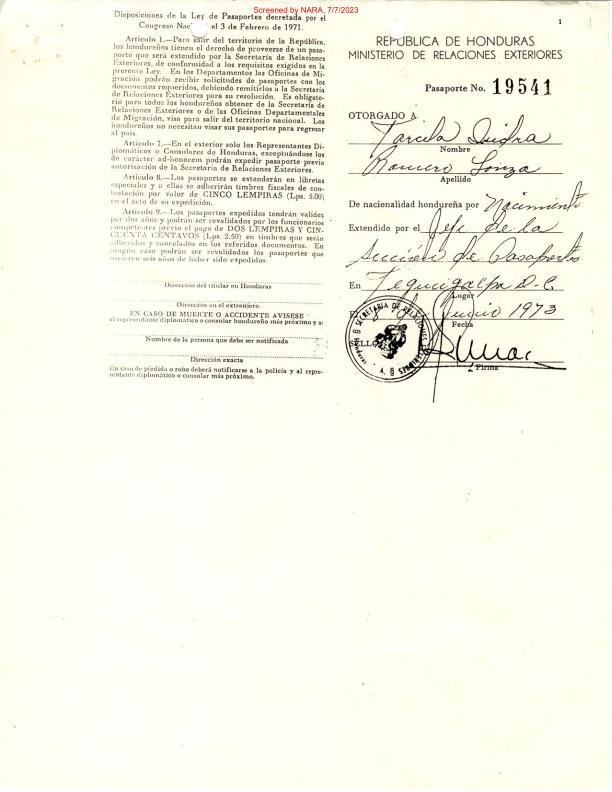 Screened by NARA, 7/7/2023
Disposiciones de la Ley de Pasaportes decretada por el
Congreso Nac el 3 de Febrero de 1971.
Artículo 1.—Para salir del territorio de la República,
los hondureños tienen el derecho de proveerse de un pasa-
porte que será extendido por la Secretaría de Relaciones
Exteriores, de conformidad a los requisitos exigidos en la
presente Ley. En los Departamentos las Oficinas de Mi-
gración podrán recibir solicitudes de pasaportes con los
documentos requeridos, debiendo remitirlos a la Secretaría
de Relaciones Exteriores para su resolución. Es obligato-
rio para todos los hondureños obtener de la Secretaría de
Relaciones Exteriores o de las Oficinas Departamentales
de Migración, visa para salir del territorio nacional. Los
hondureños no necesitan visar sus pasaportes para regresar
al país.
Artículo 7.—En el exterior solo los Representantes Di-
plomáticos o Consulares de Honduras, exceptuándose los
de carácter ad-honorem podrán expedir pasaporte previa
autorización de la Secretaría de Relaciones Exteriores.
Artículo 8.—Los pasaportes se extenderán en libretas
especiales y a ellas se adherirán timbres fiscales de con-
tratación por valor de CINCO LEMPIRAS (Lps. 5.00)
en el acto de su expedición.
Artículo 9.—Los pasaportes expedidos tendrán validez
por dos años y podrán ser revalidados por los funcionarios
competentes previo el pago de DOS LEMPIRAS Y CIN-
CUENTA CENTAVOS (Lps. 2.50) en timbres que serán
adheridos y cancelados en los referidos documentos. En
ningún caso podrán ser revalidados los pasaportes que
tuvieren seis años de haber sido expedidos.
Dirección del titular en Honduras
Dirección en el extranjero
EN CASO DE MUERTE O ACCIDENTE AVISESE
al representante diplomático o consular hondureño más próximo y a:
Nombre de la persona que debe ser notificada
Dirección exacta
En caso de pérdida o robo deberá notificarse a la policía y al repre-
sentante diplomático o consular más próximo.
1
REPUBLICA DE HONDURAS
MINISTERIO DE RELACIONES EXTERIORES
Pasaporte No. 19541
OTORGADO A
Tarcila Isidra
Nombre
Romero
Apellido
De nacionalidad hondureña por Nacimiento
Extendido por el Jefe de la
Sección de Pasaportes
En Tegucigalpa D.C.
Lugar
Junio 1973
Fecha
SELLO
SECRETARIA DE RELACIONES
Firma